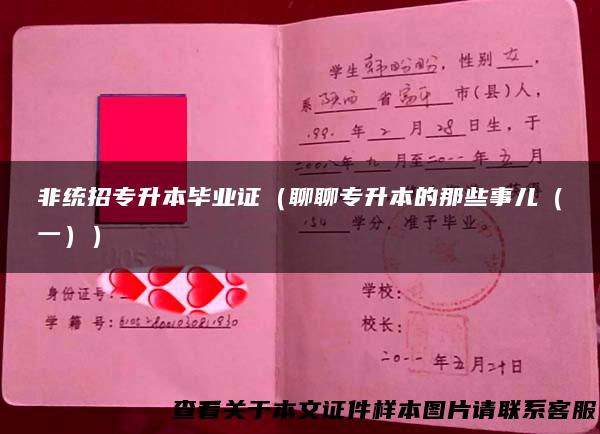 学生韩盼盼，性别女，
系陕西省富平市(县)人，
199 年2月28日生，于
二00八年九月至二0一一年五月
非统招专升本毕业证（聊聊专升本的那些事儿（
一））
154学分，准予毕业。
身份证号：
学籍号：
学校：
校长：
二0一一年五月二十日
查看关于本文证件样本图片请联系客服